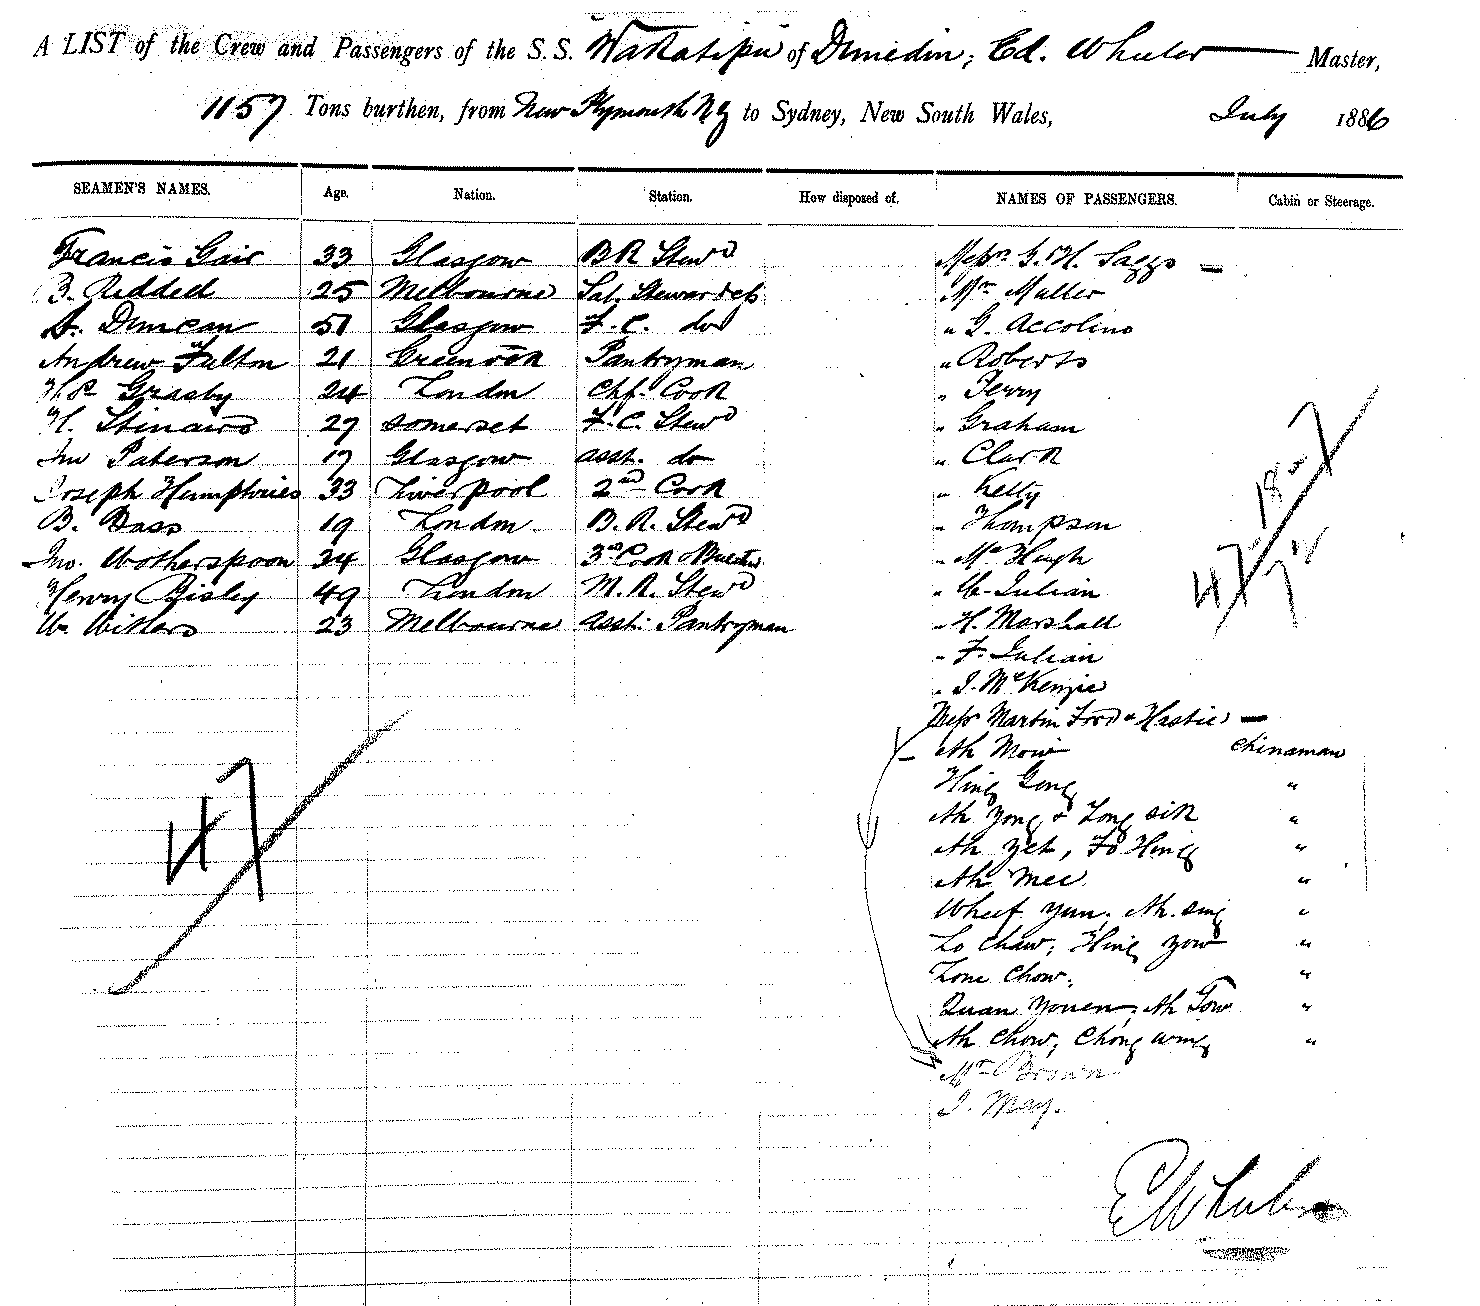 A LIST of the Crew and Passengers of the S.S. Wakatipu of Dunedin, Ed. Wheeler Master,
1157 Tons burthen, from New Plymouth NZ to Sydney, New South Wales, July 1886
SEAMEN'S NAMES. Age. Nation. Station. How disposed of. NAMES OF PASSENGERS. Cabin or Steerage.
Francis Gair 33 Glasgow B R Stewd Messrs G. H. Saggs
B. Riddell 25 Melbourne Sal. Stewardess Mr Muller
A. Duncan 51 Glasgow F. C. do " G. Accolino
Andrew Fulton 21 Greenock Pantryman " Roberts
Grasby 24 London Chf. Cook " Terry
H. Stinaird 27 Somerset F. C. Stewd " Graham
Jno Paterson 17 Glasgow asst. do " Clark
Joseph Humphries 33 Liverpool 2nd Cook " Kelly
B. Bass 19 London B. R. Stewd " Thompson
Jno. Wotherspoon 34 Glasgow 3rd Cook & " McHugh
Henry Bisley 49 London M. R. Stewd " Julian
W. Withers 23 Melbourne asst. Pantryman " H. Marshall
" F. Julian
" J. McKenzie
Messrs Martin Ford & Hastie
Ah Mow Chinaman
Hing Gong "
Ah Yong & Long Sik "
Ah Yet, Fo Hing "
Ah Mee "
Yun, Ah Sing "
Lo Chaw, Hing Yow "
Lone Chow, "
Quan Youen, Ah Tow "
Ah Chow, Chong Wing "
Mr Brown
J. May.
47
47
18
E Wheeler